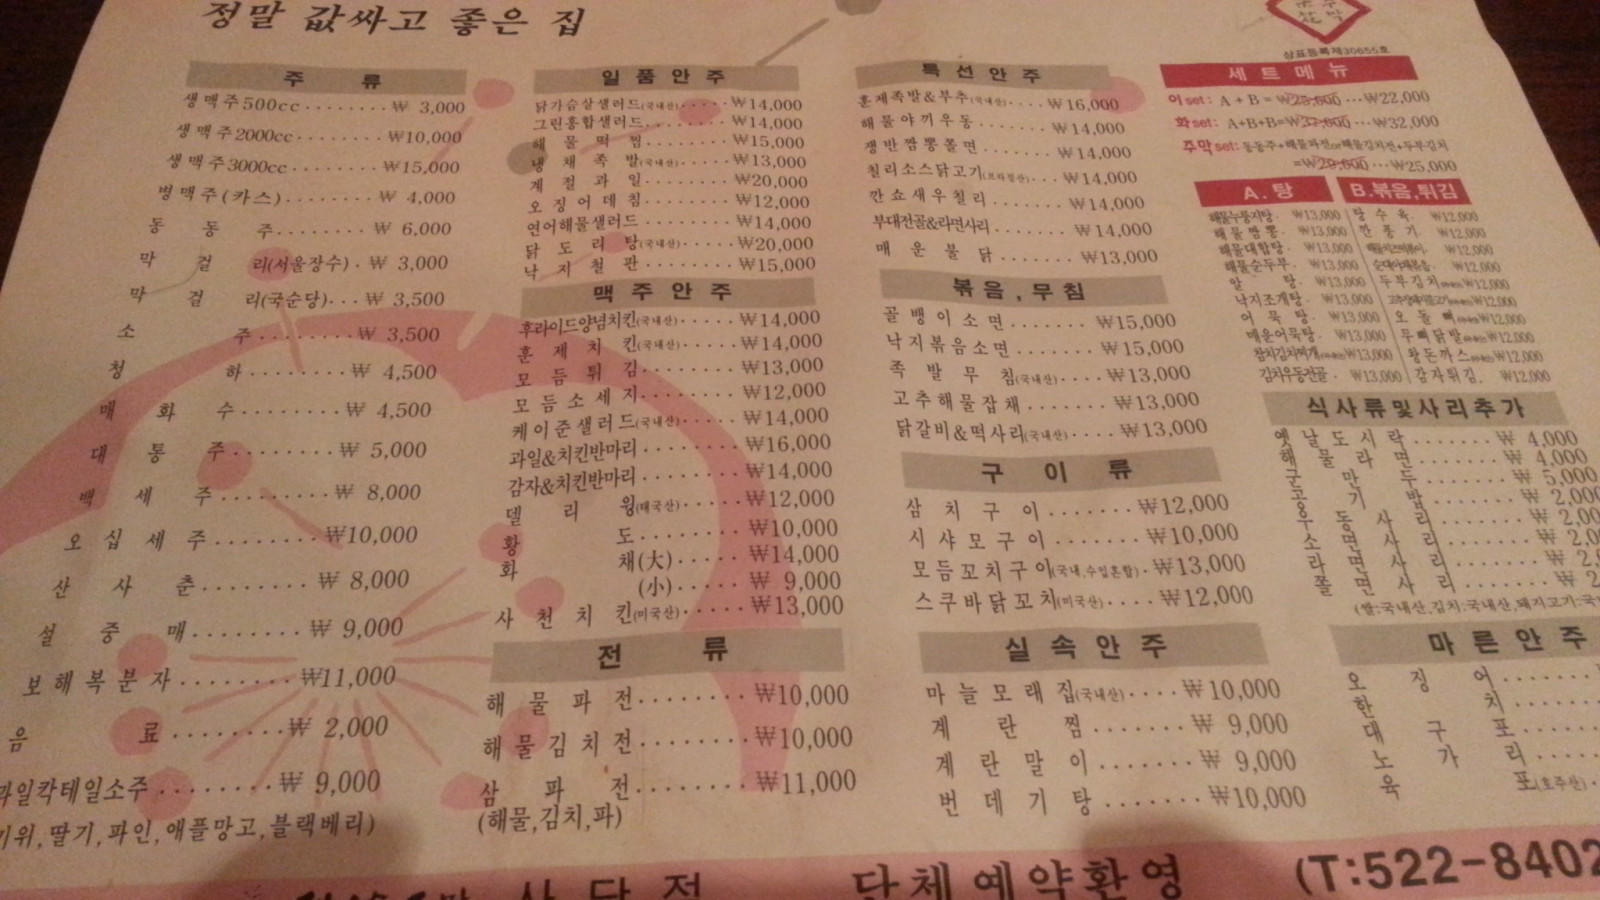 정말 값싸고 좋은 집
상표등록제30655호
주 류
생맥주500cc ........ ₩ 3,000
생맥주2000cc ........ ₩10,000
생맥주3000cc ........ ₩15,000
병맥주(카스) ........ ₩ 4,000
동 동 주 ........ ₩ 6,000
막 걸 리(서울장수) . ₩ 3,000
막 걸 리(국순당) ... ₩ 3,500
소 주 ........ ₩ 3,500
청 하 ........ ₩ 4,500
매 화 수 ........ ₩ 4,500
대 통 주 ........ ₩ 5,000
백 세 주 ........ ₩ 8,000
오 십 세 주 ........ ₩10,000
산 사 춘 ........ ₩ 8,000
설 중 매 ........ ₩ 9,000
보해복분자 ........ ₩11,000
음 료 ........ ₩ 2,000
과일칵테일소주 ........ ₩ 9,000
키위,딸기,파인,애플망고,블랙베리)
일품안주
닭가슴살샐러드(국내산) ..... ₩14,000
그린홍합샐러드 ........ ₩14,000
해 물 떡 찜 ........ ₩15,000
냉 채 족 발(국내산) ..... ₩13,000
계 절 과 일 ........ ₩20,000
오 징 어 데 침 ........ ₩12,000
연어해물샐러드 ........ ₩14,000
닭 도 리 탕(국내산) ..... ₩20,000
낙 지 철 판 ........ ₩15,000
맥주안주
후라이드양념치킨(국내산) ..... ₩14,000
훈 제 치 킨(국내산) ..... ₩14,000
모 듬 튀 김 ........ ₩13,000
모 듬 소 세 지 ........ ₩12,000
케이준샐러드(국내산) ..... ₩14,000
과일&치킨반마리 ........ ₩16,000
감자&치킨반마리 ........ ₩14,000
델 리 윙(태국산) ..... ₩12,000
황 도 ........ ₩10,000
화 채(大) ........ ₩14,000
(小) ........ ₩ 9,000
사 천 치 킨(미국산) ..... ₩13,000
전 류
해 물 파 전 ........ ₩10,000
해물김치전 ........ ₩10,000
삼 파 전 ........ ₩11,000
(해물,김치,파)
특선안주
훈제족발&부추(국내산) .... ₩16,000
해물야끼우동 ........ ₩14,000
쟁반짬뽕쫄면 ........ ₩14,000
칠리소스닭고기(브라질산) ... ₩14,000
깐쇼새우칠리 ........ ₩14,000
부대전골&라면사리 ........ ₩14,000
매 운 불 닭 ........ ₩13,000
볶음,무침
골뱅이소면 ........ ₩15,000
낙지볶음소면 ........ ₩15,000
족 발 무 침(국내산) .... ₩13,000
고추해물잡채 ........ ₩13,000
닭갈비&떡사리(국내산) .... ₩13,000
구 이 류
삼 치 구 이 ........ ₩12,000
시샤모구이 ........ ₩10,000
모듬꼬치구이(국내,수입혼합) . ₩13,000
스쿠바닭꼬치(미국산) .... ₩12,000
실속안주
마늘모래집(국내산) .... ₩10,000
계 란 찜 ........ ₩ 9,000
계 란 말 이 ........ ₩ 9,000
번 데 기 탕 ........ ₩10,000
세트메뉴
이set: A+B=₩25,000 ...₩22,000
화set: A+B+B=₩37,000 ...₩32,000
주막set: 동동주+해물파전or해물김치전+두부김치
=₩29,000 ...₩25,000
A.탕
해물누룽지탕. ₩13,000
해 물 짬 뽕. ₩13,000
해물대합탕. ₩13,000
해물순두부. ₩13,000
알 탕. ₩13,000
낙지조개탕. ₩13,000
어 묵 탕. ₩13,000
매운어묵탕. ₩13,000
참치김치찌개 ₩13,000
김치우동전골. ₩13,000
B.볶음,튀김
탕 수 육. ₩12,000
깐 풍 기. ₩12,000
₩12,000
순대야채볶음. ₩12,000
두부김치 ₩12,000
₩12,000
오 돌 뼈 ₩12,000
무뼈닭발 ₩12,000
왕돈까스 ₩12,000
감자튀김. ₩12,000
식사류및사리추가
옛 날 도 시 락 ........ ₩ 4,000
해 물 라 면 ........ ₩ 4,000
군 만 두 ........ ₩ 5,000
공 기 밥 ........ ₩ 2,000
우 동 사 리 ........ ₩ 2,00
소 면 사 리 ........ ₩ 2,0
라 면 사 리 ........ ₩ 2,
쫄 면 사 리 ........ ₩ 2
(쌀:국내산,김치:국내산,돼지고기:국
마른안주
오 징 어 ........
한 치 ........
대 구 포 ........
노 가 리 ........
육 포(호주산) .
단체예약환영
(T:522-8402